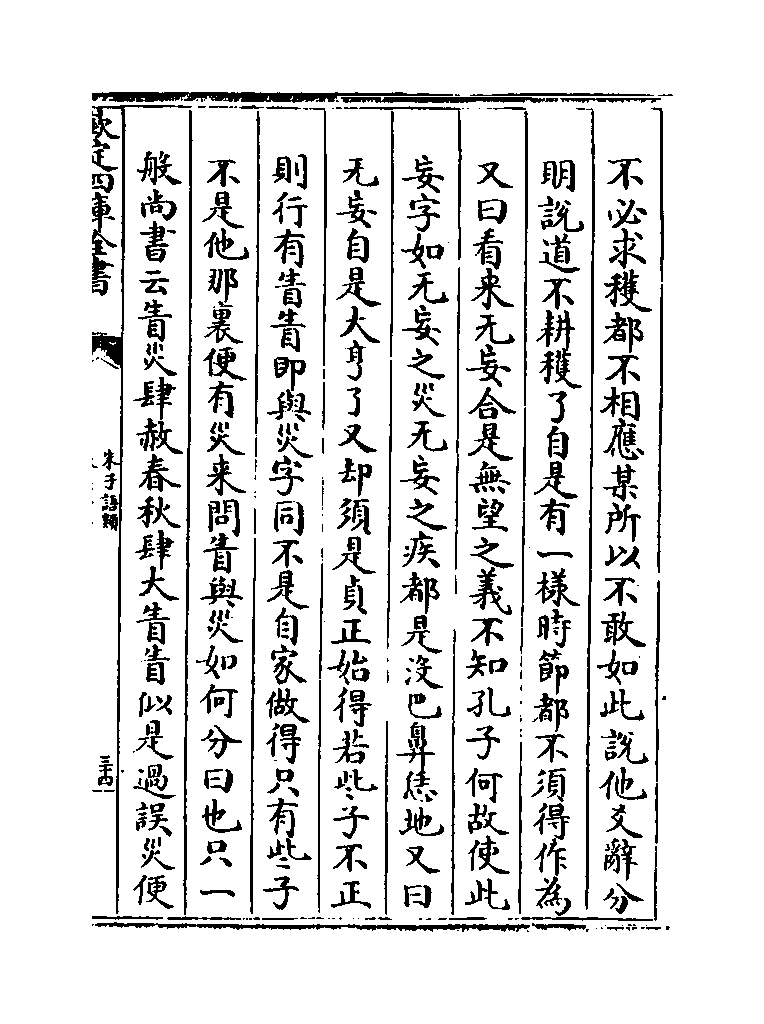 不必求穫都不相應某所以不敢如此說他爻辭分
明說道不耕穫了自是有一様時節都不須得作為
又曰看来无妄合是無望之義不知孔子何故使此
妄字如无妄之災无妄之疾都是没巴鼻恁地又曰
无妄自是大亨了又却須是貞正始得若些子不正
則行有眚眚即與災字同不是自家做得只有些子
不是他那裏便有災来問眚與災如何分曰也只一
般尚書云眚災肆赦春秋肆大眚眚似是過誤災便
欽定四庫全書
朱子語類
三十四